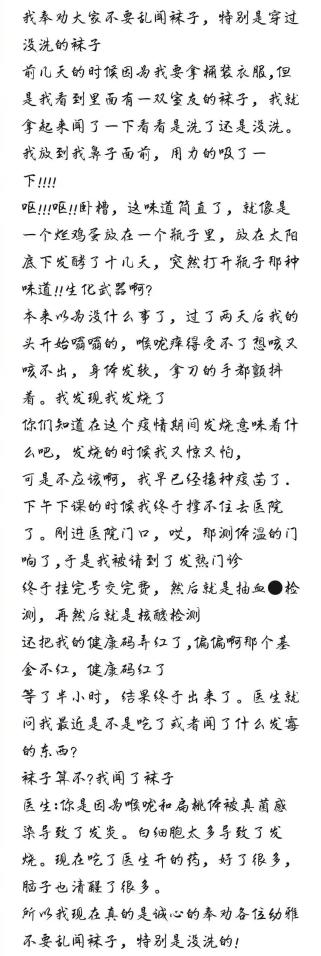 我奉劝大家不要乱闻袜子，特别是穿过
没洗的袜子
前几天的时候因为我要拿桶装衣服,但
是我看到里面有一双室友的袜子，我就
拿起来闻了一下看看是洗了还是没洗。
我放到我鼻子面前，用力的吸了一
下!!!!
呕!!!呕!!卧槽，这味道简直了，就像是
一个烂鸡蛋放在一个瓶子里，放在太阳
底下发酵了十几天，突然打开瓶子那种
味道!!生化武器啊?
本来以为没什么事了，过了两天后我的
头开始嗡嗡的，喉咙痒得受不了想咳又
咳不出，身体发软，拿刀的手都颤抖
着。我发现我发烧了
你们知道在这个疫情期间发烧意味着什
么吧，发烧的时候我又惊又怕，
可是不应该啊，我早已经接种疫苗了.
下午下课的时候我终于撑不住去医院
了。刚进医院门口，哎，那测体温的门
响了,于是我被请到了发热门诊
终于挂完号交完费，然后就是抽血●检
测，再然后就是核酸检测
还把我的健康码弄红了,偏偏啊那个基
金不红，健康码红了
等了半小时，结果终于出来了。医生就
问我最近是不是吃了或者闻了什么发霉
的东西?
袜子算不?我闻了袜子
医生:你是因为喉咙和扁桃体被真菌感
染导致了发炎。白细胞太多导致了发
烧。现在吃了医生开的药，好了很多，
脑子也清醒了很多。
所以我现在真的是诚心的奉劝各位幼雅
不要乱闻袜子，特别是没洗的!